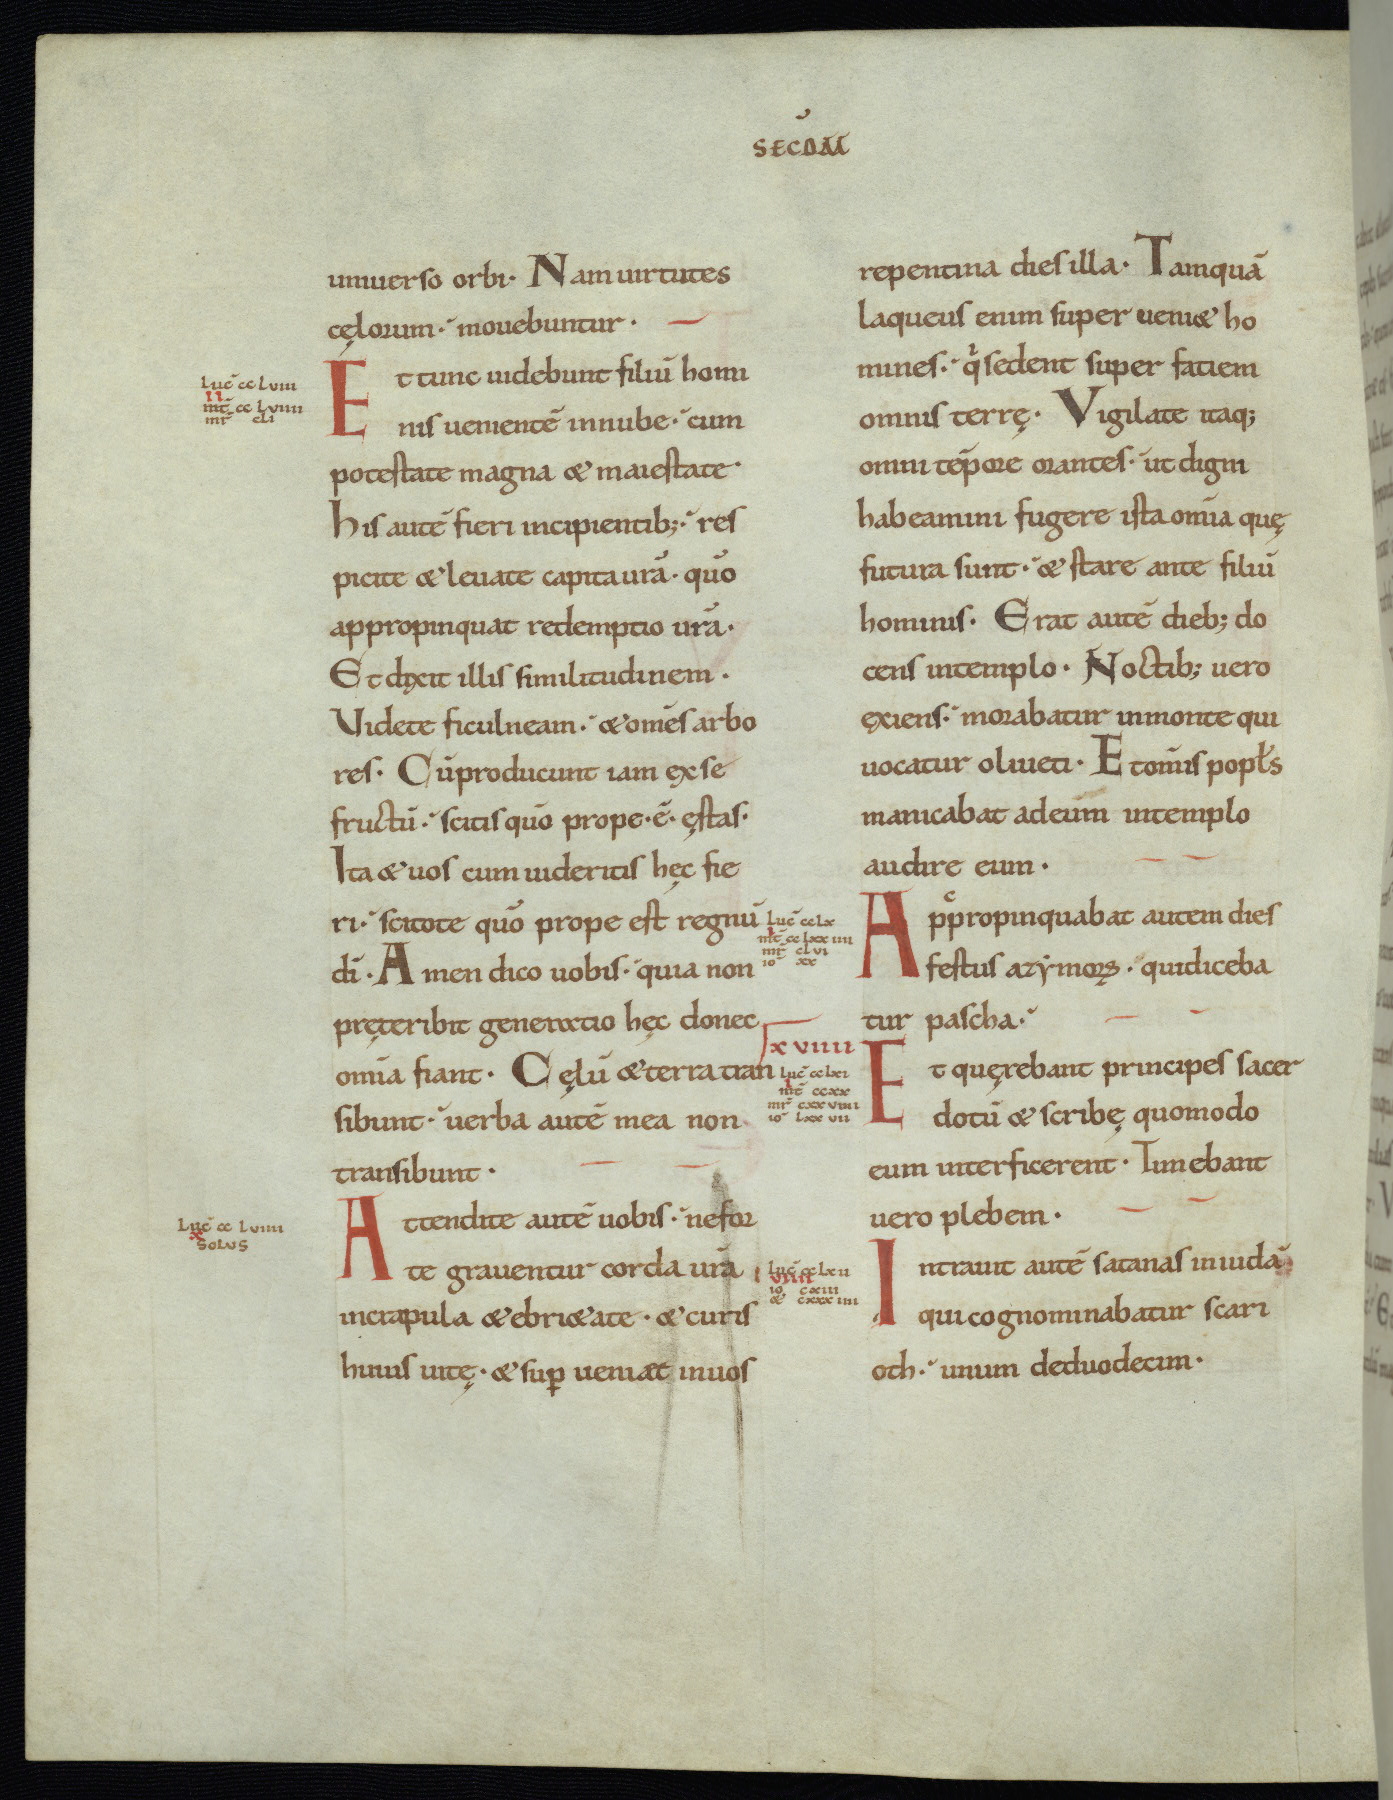 SECDM̄
uniuerso orbi· Nam uirtutes
cęlorum·᷃ mouebuntur·
Luc̄ cc lviii
II
mt̄ cc lviiii
mr̄ cli
Et tunc uidebunt filiū homi
nis uenientē in nube·᷃ cum
potestate magna & maiestate·
his autē fieri incipientib;·᷃ res
picite & leuate capita ūra· quō
appropinquat redemptio ūra·
Et dixit illis similitudinem·
Videte ficulneam·᷃ & om̄es arbo
res· Cū producunt iam ęx se
fructū·᷃ scitis quō prope·ē· ęstas·
Ita & uos cum uideritis hęc fie
ri·᷃ scitote quō prope est regnū
dī· Amen dico uobis·᷃ quia non
pręteribit generatio hęc donec
om̄ia fiant· Cęlū & terra tran
sibunt·᷃ uerba autē mea non
transibunt·
Luc̄ cc lviiii
X
SOLUS
Attendite autē uobis·᷃ ne for
te grauentur corda ūra
in crapula & ebri&ate· & curis
huius uitę· & sup̄ ueniat in uos
repentina dies illa· Tamquā
laqueus enim super ueni& ho
mines·᷃ qͥ sedent super fatiem
omnis terrę· Vigilate itaq;
omni tēpore orantes·᷃ ut digni
habeamini fugere ista om̄ia quę
futura sunt·᷃ & stare ante filiū
hominis· Erat autē dieb; do
cens in templo· Noctib; uero
ęxiens·᷃ morabatur in monte qui
uocatur oliueti· Et om̄is popłs
manicabat ad eum in templo
audire eum·
Luc̄ cc lx
I
mt̄ cc lxxiiii
mr̄ clvi
io xx
Appropinquabat autem dies
festus azẏmoꝝ·᷃ qui diceba
tur pascha·᷃
xviiii
Luc̄ cc lxi
I
mt̄ ccxx
mr̄ cxxviiii
io lxxvii
Et quęrebant principes sacer
dotū & scribę quomodo
eum interficerent· Timebant
uero plebem·
Luc̄ cc lxii
VIIII
io cxiii
& cxxxiiii
Intrauit autē satanas in iudā
qui cognominabatur scari
oth·᷃ unum de duodecim·